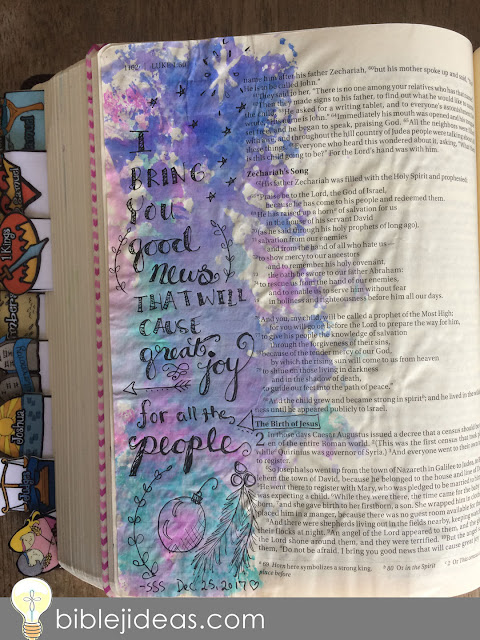 LUKE
I
BRING
YOU
good
news
THAT WILL
CAUSE
great joy
for all the
people
-SSS Dec 25, 2017
name him after his father Zechariah, 60but his mother spoke up and said,
He is to be called John."
61They said to her, "There is no one among your relatives who has that
62Then they made signs to his father, to find out what he would like to
the child. 63He asked for a writing tablet, and to everyone's
wrote, "His name is John." 64Immediately his mouth was opened and
set free, and he began to speak, praising God. 65All the neighbors were
awe, and throughout the hill country of Judea people were talking
these things. 66Everyone who heard this wondered about it, asking, "What
is this child going to be?" For the Lord's hand was with him.
Zechariah's Song
67His father Zechariah was filled with the Holy Spirit and prophesied:
68"Praise be to the Lord, the God of Israel,
because he has come to his people and redeemed them.
69He has raised up a horn of salvation for us
in the house of his servant David
70(as he said through his holy prophets of long ago),
71salvation from our enemies
and from the hand of all who hate us—
72to show mercy to our ancestors
and to remember his holy covenant,
73the oath he swore to our father Abraham:
74to rescue us from the hand of our enemies,
and to enable us to serve him without fear
75in holiness and righteousness before him all our days.
76And you, my child, will be called a prophet of the Most High;
for you will go on before the Lord to prepare the way for him,
77to give his people the knowledge of salvation
through the forgiveness of their sins,
78because of the tender mercy of our God,
by which the rising sun will come to us from heaven
79to shine on those living in darkness
and in the shadow of death,
to guide our feet into the path of peace."
80And the child grew and became strong in spirit; and he lived in the
until he appeared publicly to Israel.
The Birth of Jesus
2 In those days Caesar Augustus issued a decree that a census should
of the entire Roman world. 2(This was the first census that took
while Quirinius was governor of Syria.) 3And everyone went to their own
to register.
4So Joseph also went up from the town of Nazareth in Galilee to Judea,
Bethlehem the town of David, because he belonged to the house and line of
5He went there to register with Mary, who was pledged to be married to
was expecting a child. 6While they were there, the time came for the baby
born, 7and she gave birth to her firstborn, a son. She wrapped him in
placed him in a manger, because there was no guest room available for
8And there were shepherds living out in the fields nearby, keeping
their flocks at night. 9An angel of the Lord appeared to them, and the
the Lord shone around them, and they were terrified. 10But the angel
them, "Do not be afraid. I bring you good news that will cause great
69 Horn here symbolizes a strong king.
80 Or in the Spirit
place before
1 Kings
Joshua
biblejideas.com